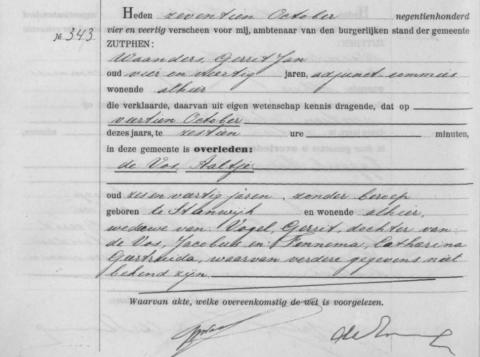 Heden zeventien October negentienhonderd
№ 343. vier en veertig verscheen voor mij, ambtenaar van den burgerlijken stand der gemeente
ZUTPHEN:
Waanders, Gerrit Jan
oud vier en veertig jaren, adjunct commies
wonende alhier
die verklaarde, daarvan uit eigen wetenschap kennis dragende, dat op
veertien October
dezes jaars, te zestien ure minuten,
in deze gemeente is overleden:
de Vos, Aaltje
oud zes en veertig jaren, zonder beroep
geboren te Steenwijk en wonende alhier,
weduwe van Vogel, Gerrit, dochter van
de Vos, Jacob en Fennema, Catharina
Geertruida, waarvan verdere gegevens niet
bekend zijn.
Waarvan akte, welke overeenkomstig de wet is voorgelezen.